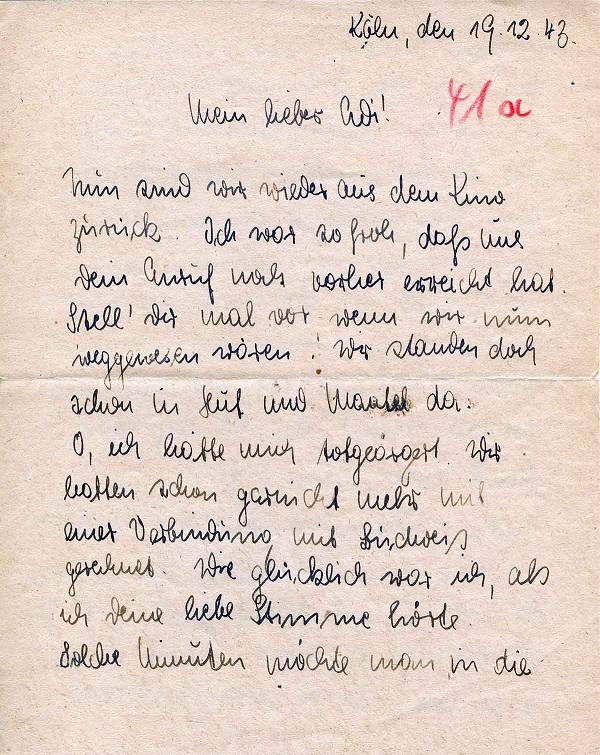 Köln, den 19.12.43.
41a
Mein lieber Adi!
Nun sind wir wieder aus dem Kino
zurück. Ich war so froh, daß uns
dein Anruf noch vorher erreicht hat.
Stell' dir mal vor wenn wir nun
weggewesen wären! Wir standen doch
schon in Hut und Mantel da.
O, ich hätte mich totgeärgert. Wir
hatten schon garnicht mehr mit
einer Verbindung mit
gerechnet. Wie glücklich war ich, als
ich deine liebe Stimme hörte.
Solche Minuten möchte man in die